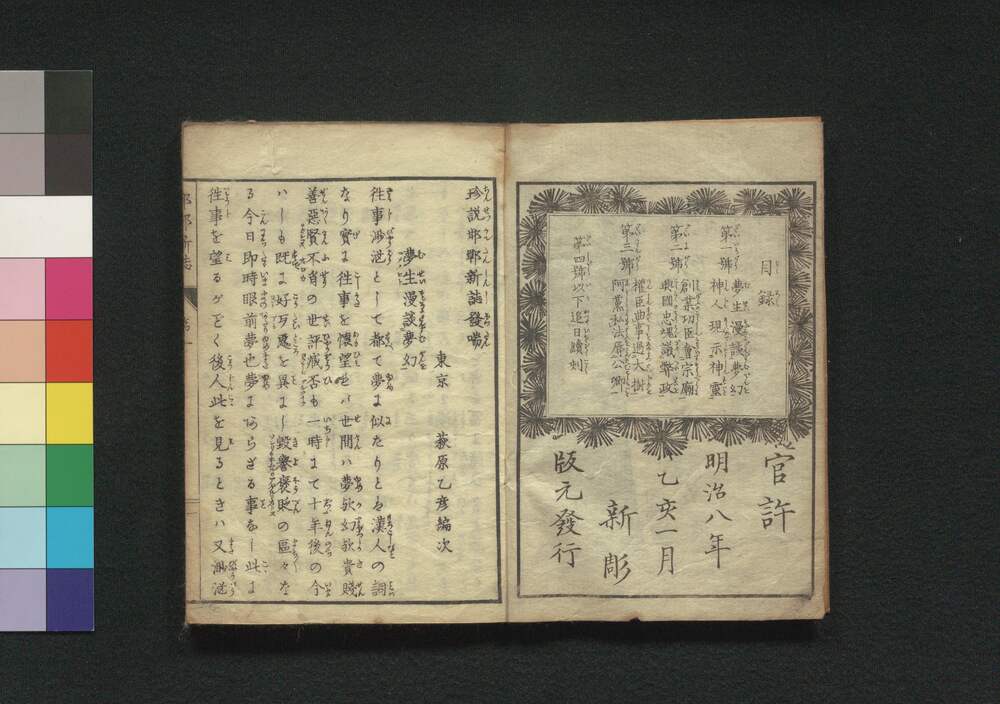 目録
第一號 夢生漫談夢幻
神人現示神靈
第二號 創業功臣會宗廟
興國忠魂議聲政
第三號 權臣曲事過大樹
阿黨私法辱公卿
第四號以下追日續刻
官許
明治八年
乙亥一月
新彫
版元發行
珍説邯鄲新誌發端
夢生漫談夢幻
東京 萩原乙彦編次
徃事渺茫として都て夢に似たりとは漢人の詞
なり實に徃事を懐望せバ世間ハ夢歟幻歟貴賤
善惡賢不肖の世評戚否も一時にて十年後の今
ハしも既に好歹愚を異にし毀譽褒貶の區々な
る今日即時眼前夢也夢にあらざる事なし此に
徃事を望るがごとく後人此を見るときハ又渺茫